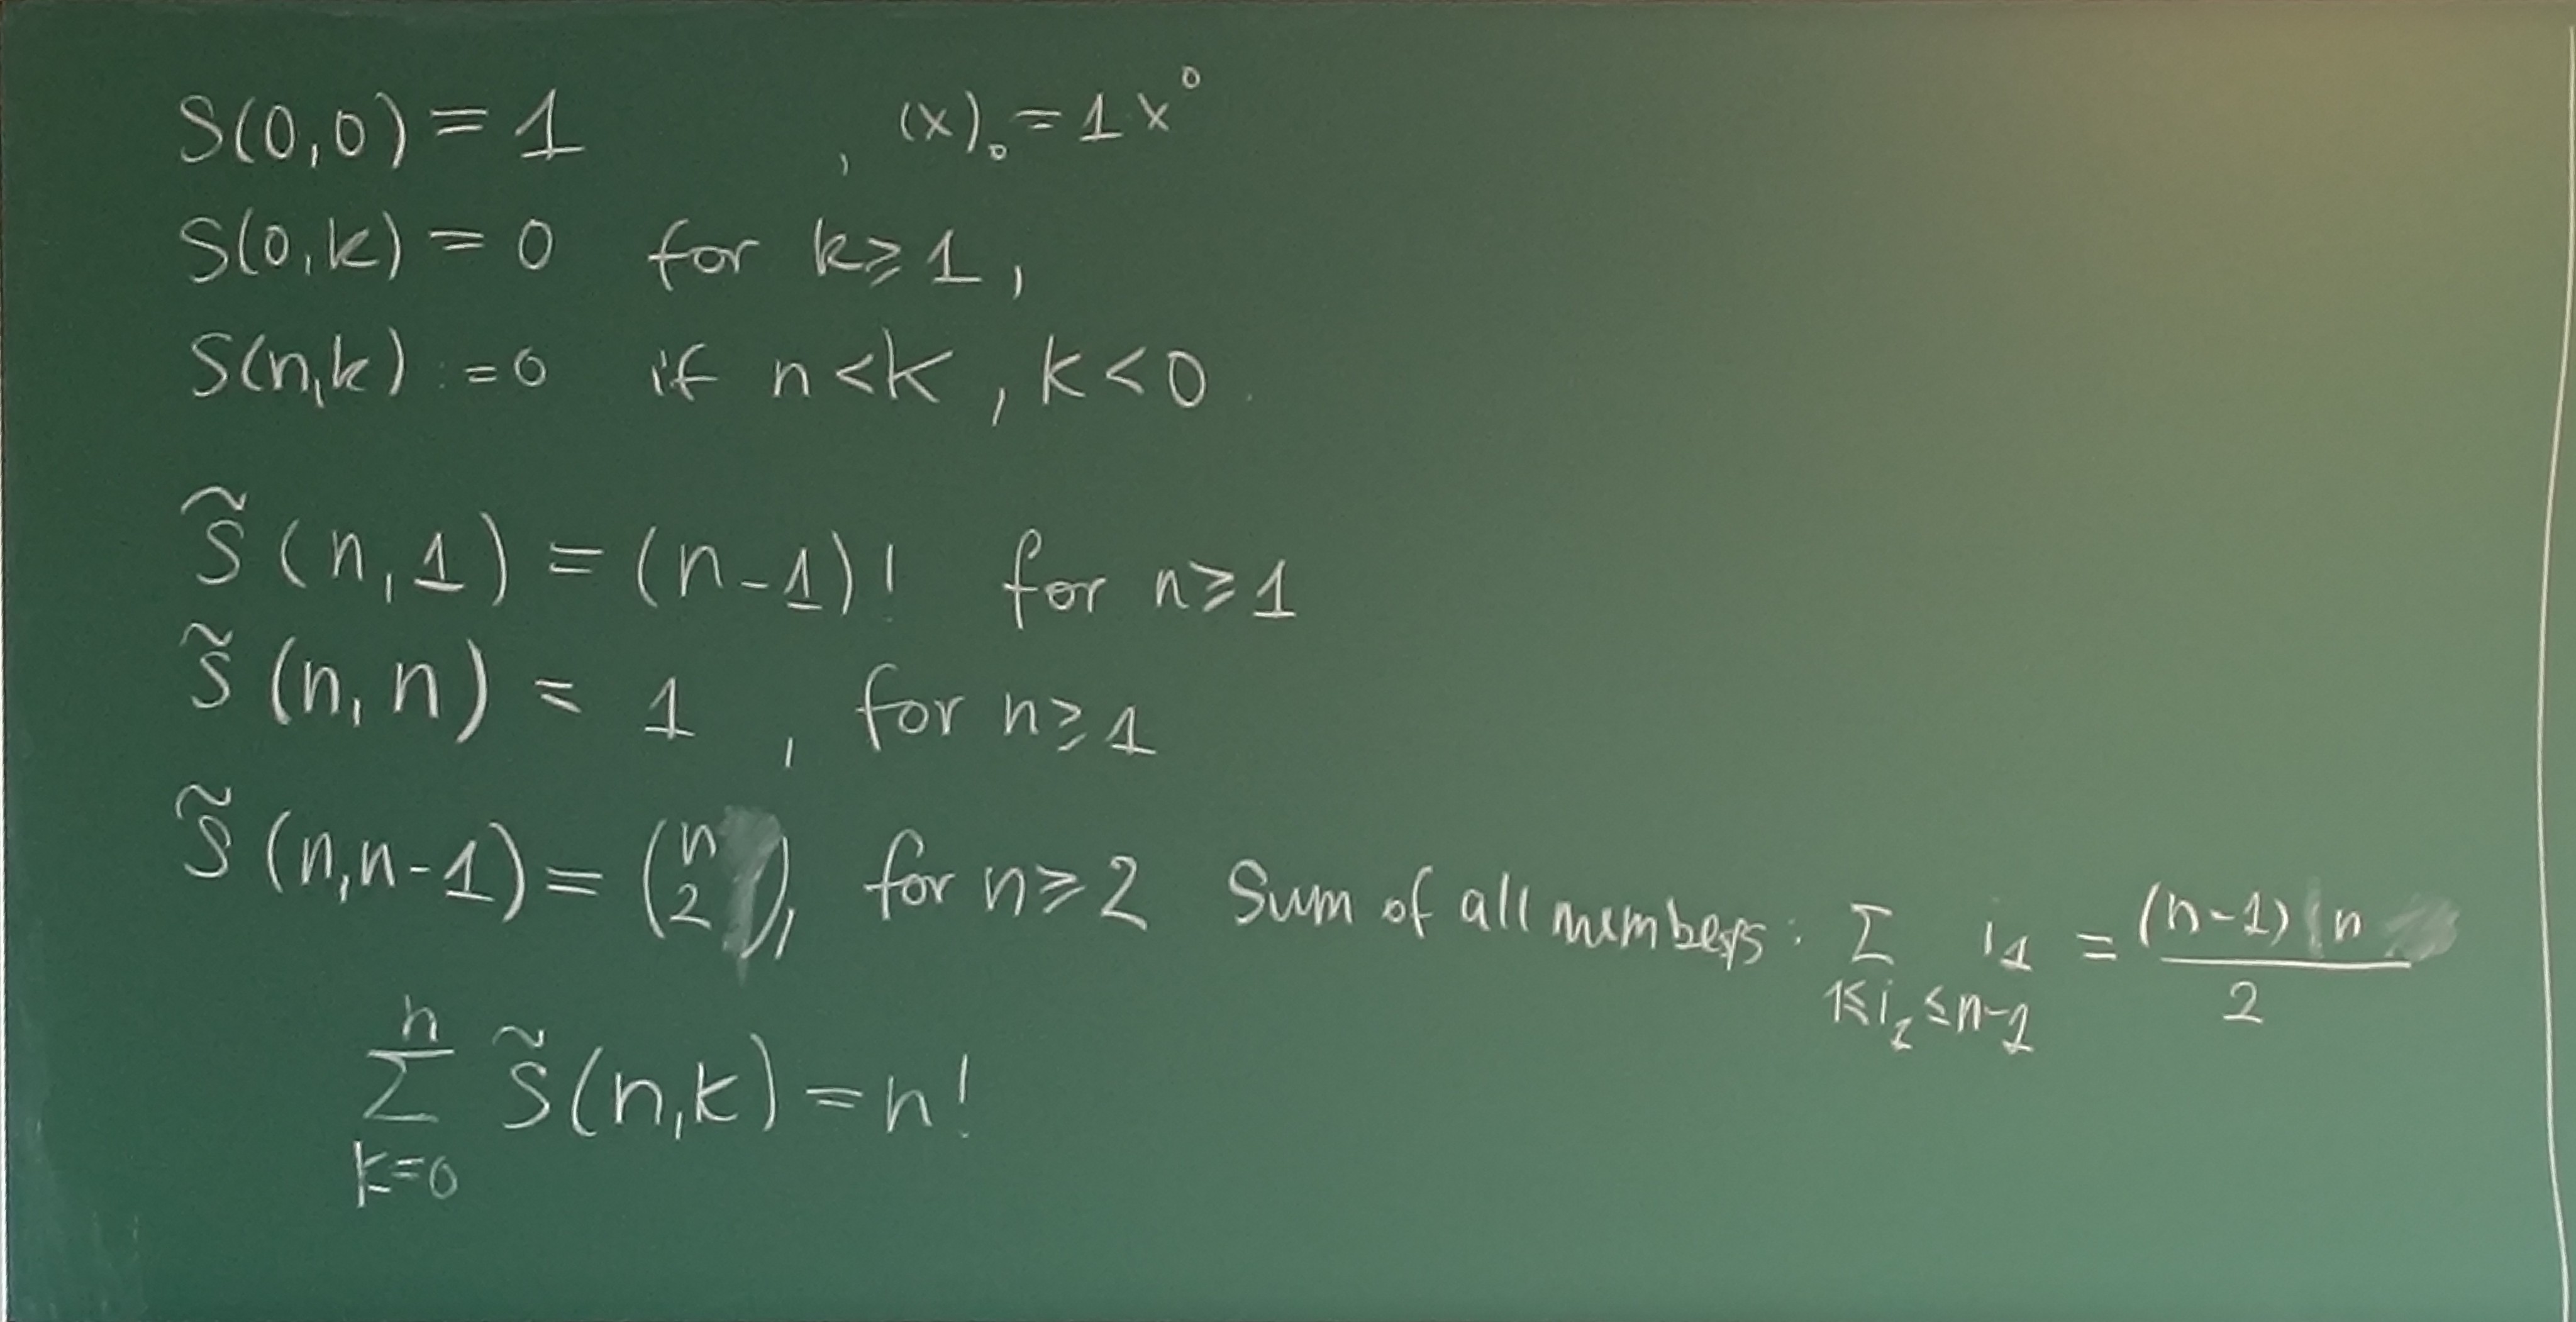 S(0,0) = 1 , (x)₀ = 1 x⁰
S(0,k) = 0 for k ≥ 1 ,
S(n,k) := 0 if n < k , k < 0 .
S̃(n,1) = (n-1)! for n ≥ 1
S̃(n,n) = 1 , for n ≥ 1
S̃(n,n-1) = (n 2), for n ≥ 2 Sum of all members: Σ_{1≤i₁≤n-1} i₁ = (n-1) n / 2
Σ_{k=0}^{n} S̃(n,k) = n!